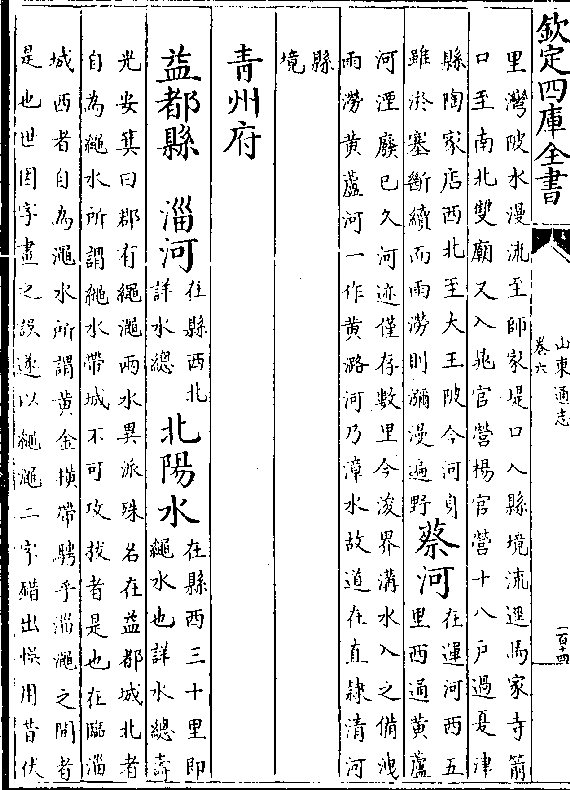 欽定四庫全書
山東通志
卷六
一百十四
里灣陂水漫流至師家堤口入縣境流逕馬家寺箭
口至南北雙廟又入兆官營楊官營十八戸過夏津
縣陶家店西北至大王陂今河身
雖淤塞斷續而雨澇則瀰漫遍野
蔡河
在運河西五
里西通黃蘆
河湮廢已久河迹僅存數里今浚界溝水入之備洩
雨澇黃蘆河一作黃潞河乃漳水故道在直隸清河
縣
境
青州府
益都縣 淄河
在縣西北
詳水總
北陽水
在縣西三十里即
繩水也詳水總壽
光安箕曰郡有繩澠兩水異派殊名在益都城北者
自為繩水所謂繩水帶城不可攻拔者是也在臨淄
城西者自為澠水所謂黃金橫帶騁乎淄澠之間者
是也世因字畫之誤遂以繩澠二字錯出悞用昔伏